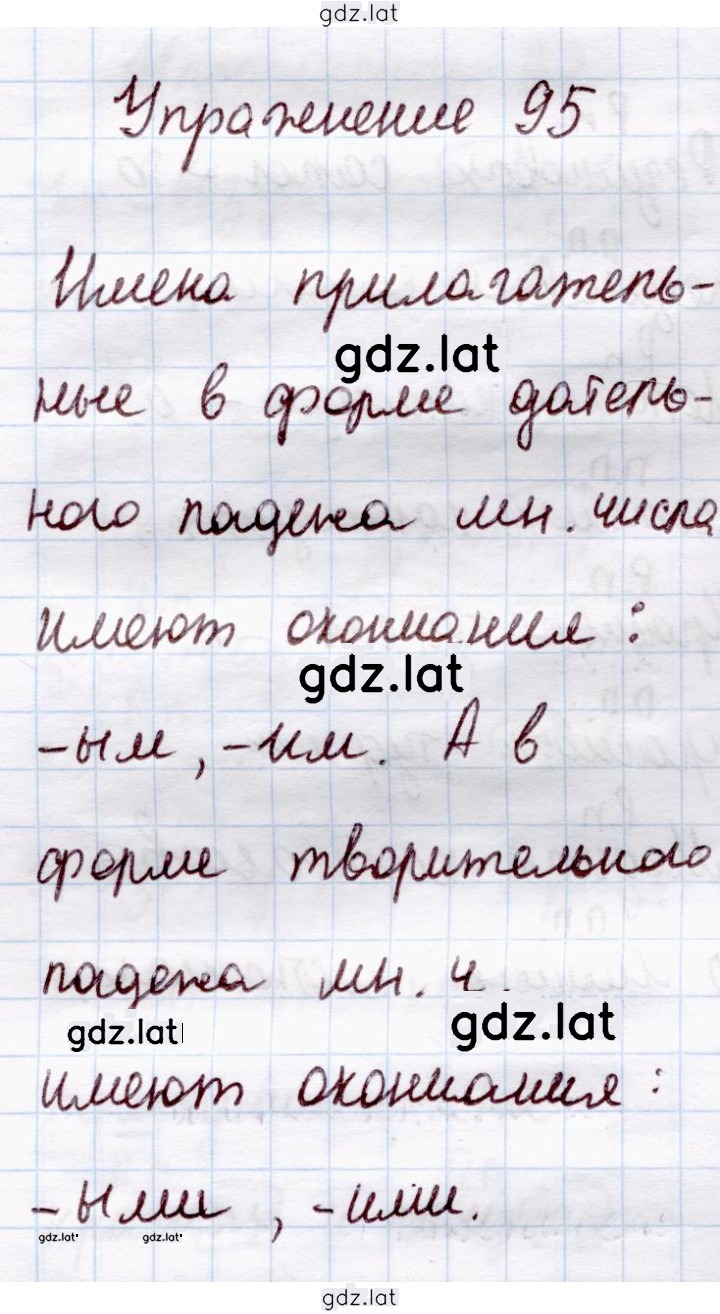 gdz.lat
Упражнение 95
Имена прилагатель-
gdz.lat
ные в форме датель-
ного падежа мн. числа
имеют окончания:
gdz.lat
-ым, -им. А в
форме творительного
падежа мн. ч.
gdz.lat gdz.lat
имеют окончания:
-ыми, -ими.
gdz.lat gdz.lat
gdz.lat